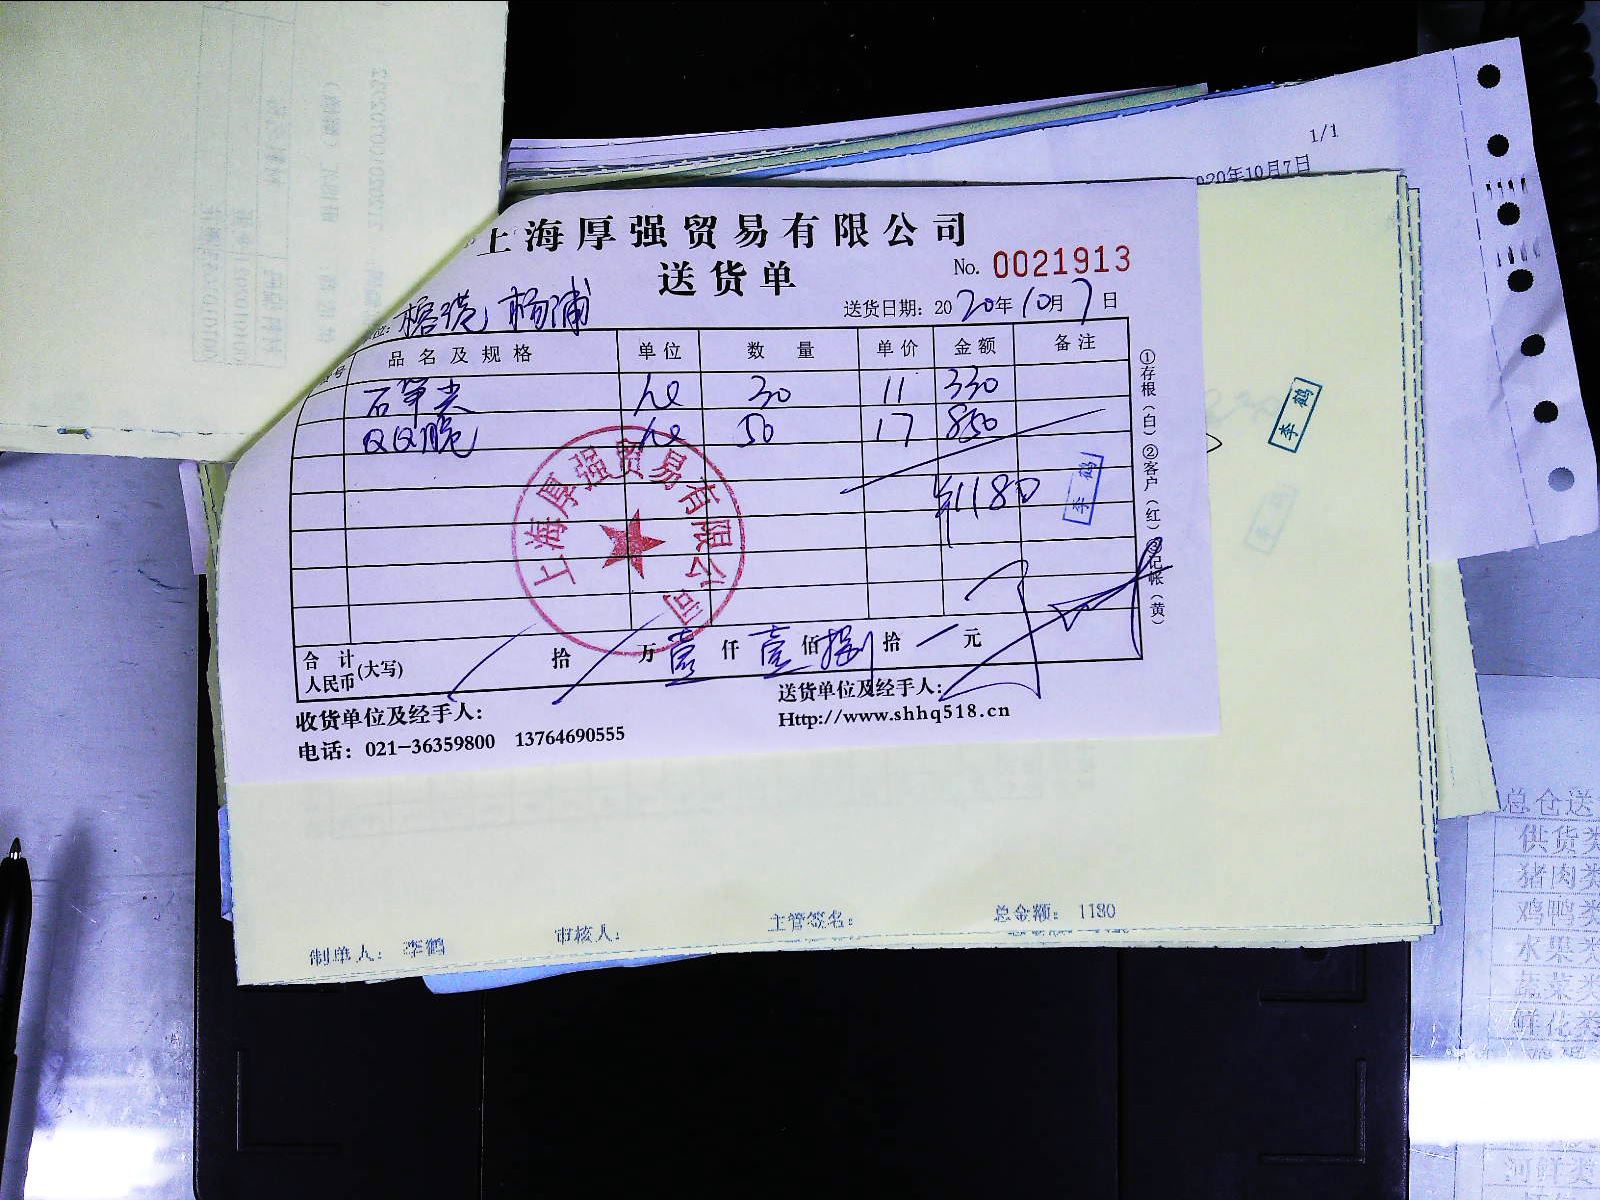 1/1
2020年10月7日
上海厚强贸易有限公司
送货单
No. 0021913
榕港 杨浦
送货日期: 2020年10月7日
品名及规格 单位 数量 单价 金额 备注
石笋尖 30 11 330
QQ脆 50 17 850
¥1180
李鹤
李鹤
上海厚强贸易有限公司
①存根(白)②客户(红)③记帐(黄)
合计人民币(大写) 拾 万 壹 仟 壹 佰 捌 拾 元
收货单位及经手人:
送货单位及经手人:
电话: 021-36359800 13764690555
Http://www.shhq518.cn
制单人: 李鹤 审核人: 主管签名: 总金额: 1180
总仓送
供货类
猪肉类
鸡鸭类
水果类
蔬菜类
鲜花类
河鲜类